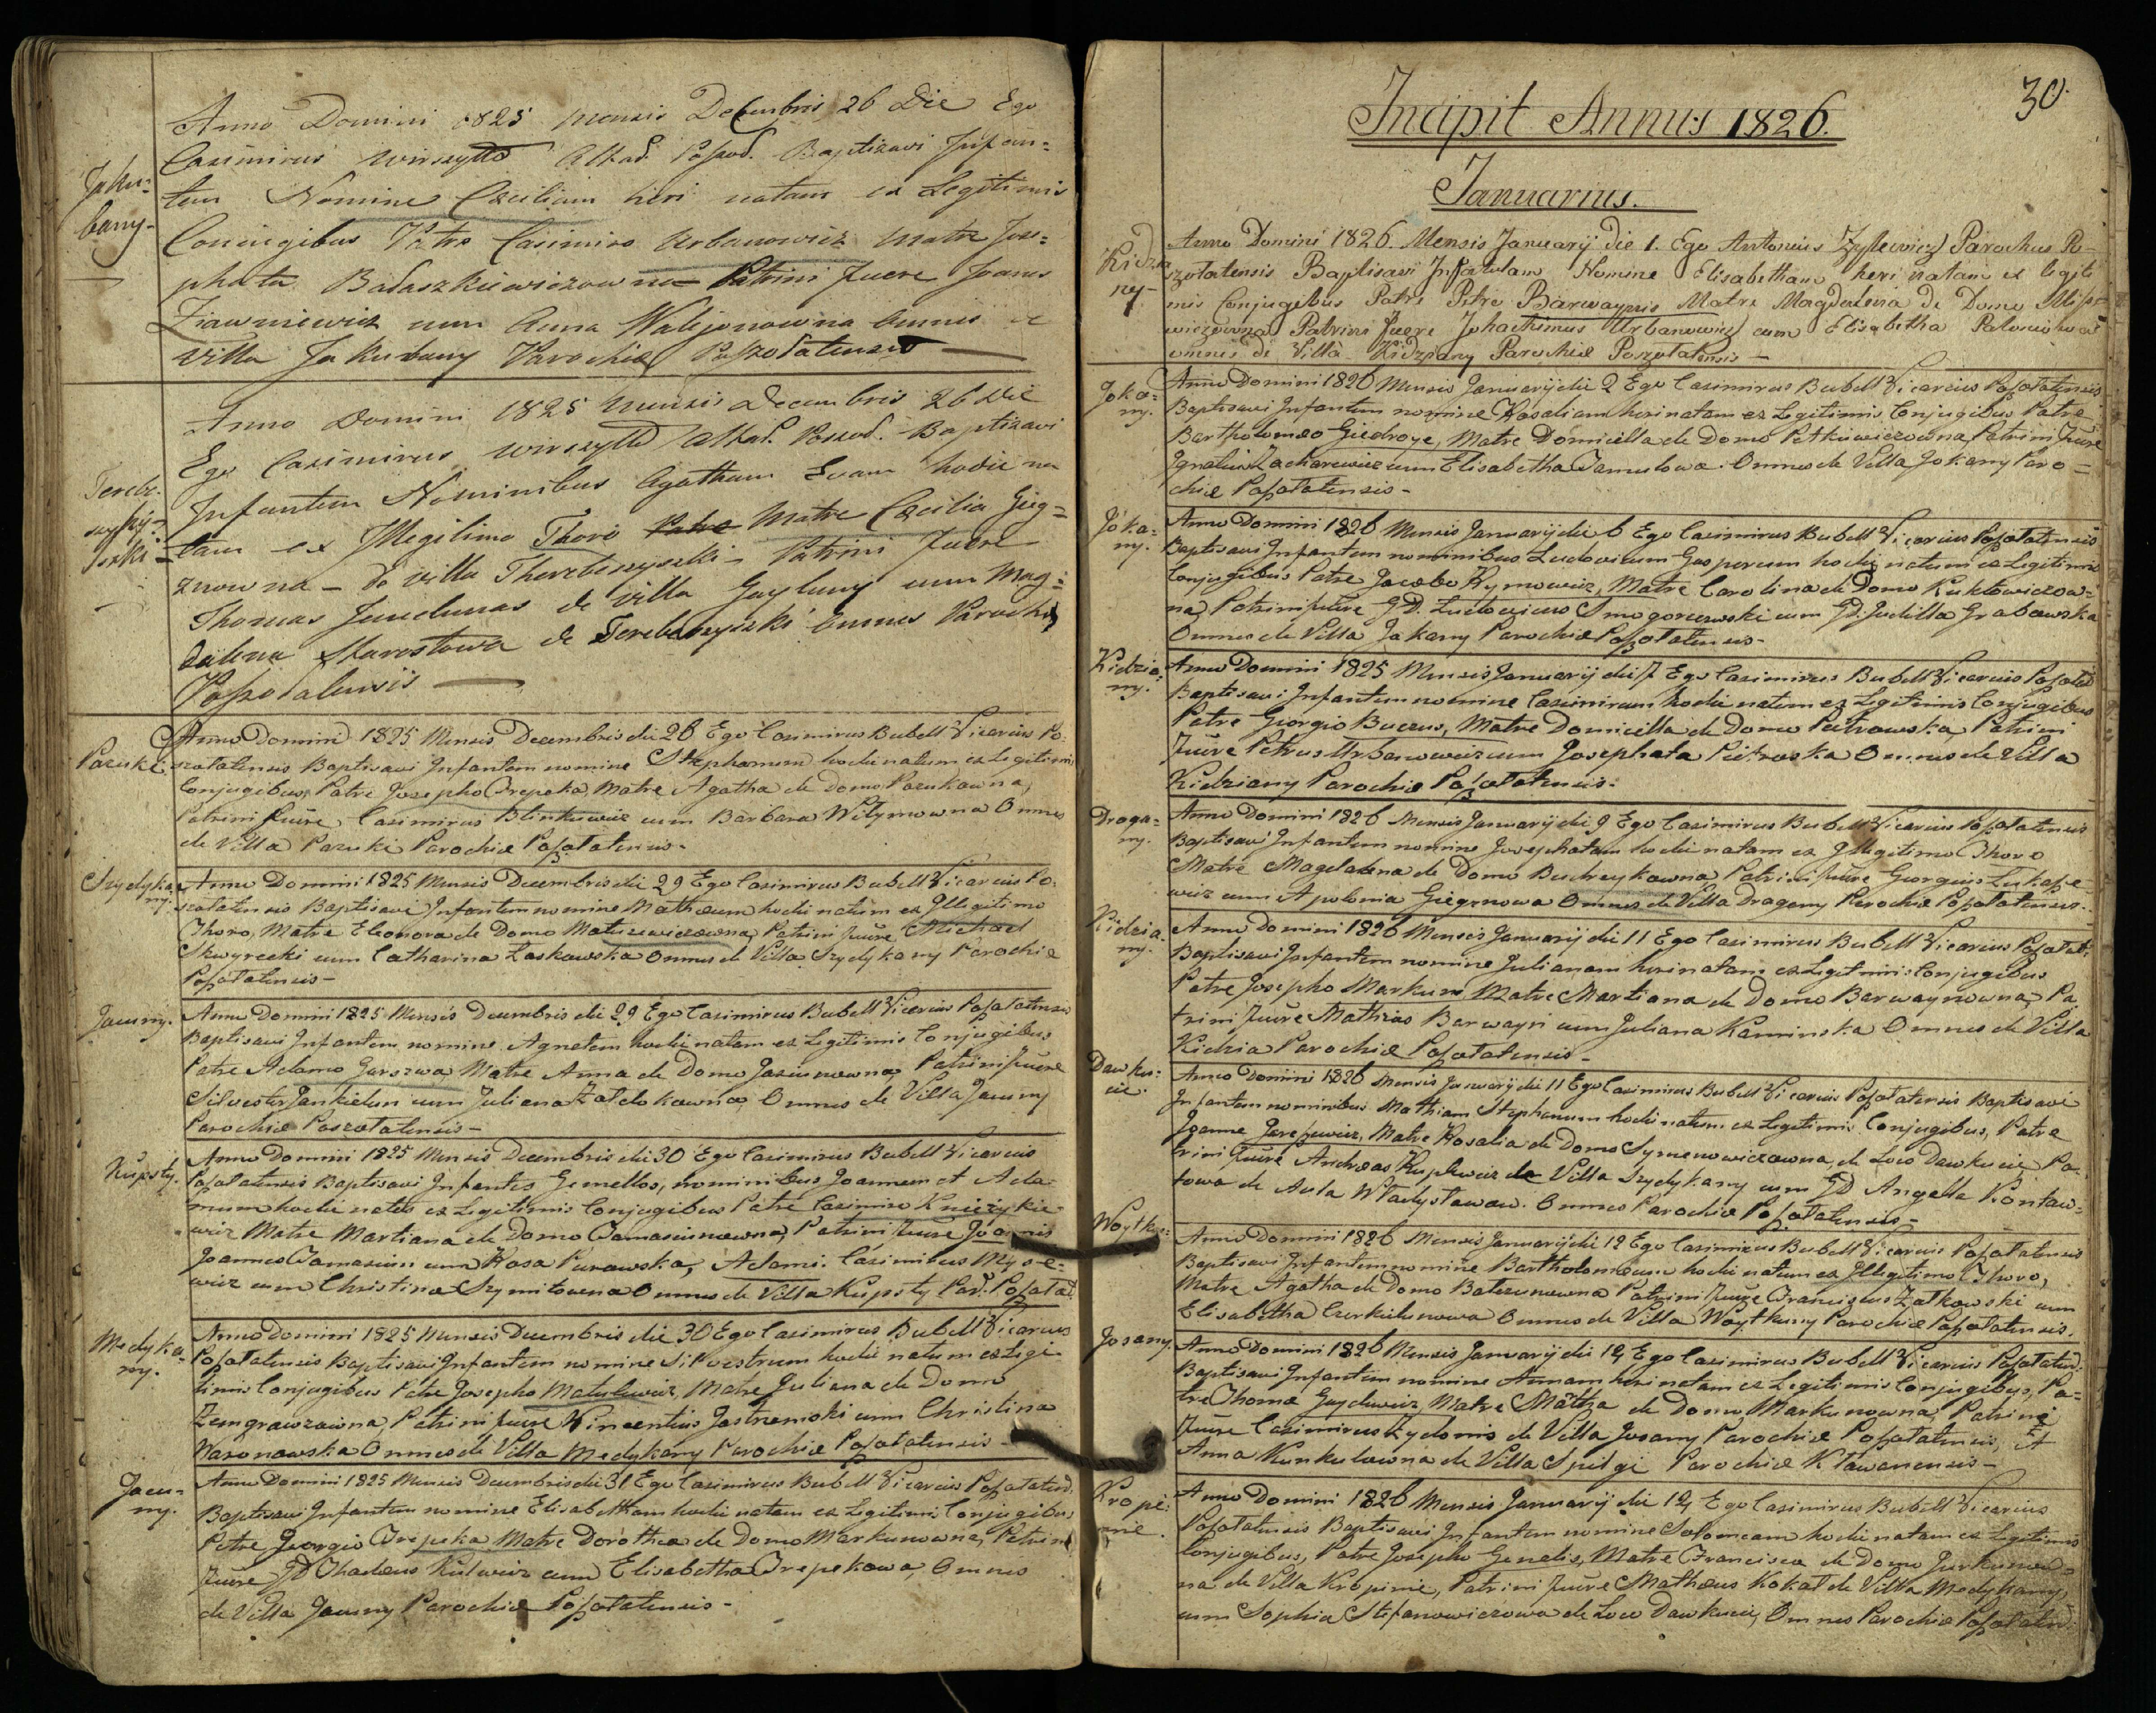 Jaku=
bany-
Anno Domini 1825 Mensis Decembris 26 Die Ego
Casimirus Wirszyłło Altar. Poszod. Baptizavi Infan=
tem Nomine Cæciliam heri natam ex Legitimis
Coniugibus Patre Casimiro Urbanowicz Matre Jose=
phata Badaszkiewiczowna Patrini fuere Joanes
cum Anna omnes de
villa Jakubany Parochiæ Poszołatensis
Anno Domini 1825 Mensis Decembris 26 Die
Ego Casimirus Wirszyłło Altar. Poszod. Baptizavi
Infantem Nominibus Agatham Evam hodie na
tam ex Illegitimo Thoro Patre Matre Cæcilia Gieg=
znowna - de villa Therebeszyszki - Patrini fuere
Thomas de villa Gayluny cum Mag=
dalena Starostowa de Terebeszyszki omnes Parochiæ
Poszodatensis
Pazuki.
Anno Domini 1825 Mensis Decembris die 26 Ego Casimirus Bubell Vicarius Po=
szołatensis Baptisavi Infantem nomine Stephanum hodie natum ex Legitimis
Conjugibus, Patre Josepho Trepeka, Matre Agatha de Domo Pazukowna,
Patrini fuere Casimirus Blinkiewicz cum Barbara Witymowna Omnes
de Villa Pazuki Parochiæ Poszołatensis-
Szydyka=
ny.
Anno Domini 1825 Mensis Decembris die 29 Ego Casimirus Bubell Vicarius Po=
szołatensis Baptisavi Infantem nomine Mathæum hodie natum ex Illegitimo
Thoro, Matre Eleonora de Domo Matusewiczowna, Patrini fuere Michael
Skwyrecki cum Catharina Laskowska Omnes de Villa Szydykany Parochiæ
Poszołatensis-
Jauny.
Anno Domini 1825 Mensis Decembris die 29 Ego Casimirus Bubell Vicarius Poszołatensis
Baptisavi Infantem nomine Agnetem hodie natam ex Legitimis Conjugibus
Patre Adamo Garszwa, Matre Anna de Domo Jasiunowna, Patrini fuere
Silvester Jankielun cum Juliana Omnes de Villa Jauny
Parochiæ Poszołatensis-
Kupsty.
Anno Domini 1825 Mensis Decembris die 30 Ego Casimirus Bubell Vicarius
Poszołatensis Baptisavi Infantes Gemellos, nominibus Joannem et Ada=
mum hodie natos ex Legitimis Conjugibus Patre Casimiro Knieżykie=
wicz Matre Martiana de Domo Tamasiunowna, Patrini fuere Joannis
Joannes Tamasiun cum Rosa Purowska, Adami: Casimirus Myse=
wicz cum Christina Szymitowna Omnes de Villa Kupsty Par: Poszołat.
Medyka=
ny.
Anno Domini 1825 Mensis Decembris die 30 Ego Casimirus Bubell Vicarius
Poszołatensis Baptisavi Infantem nomine Silvestrum hodie natum ex Legi=
timis Conjugibus Patre Josepho Matulewicz, Matre Juliana de Domo
Patrini fuere Vincentius Jastremski cum Christina
Naronowska Omnes de Villa Medykany Parochiæ Poszołatensis-
Jau=
ny.
Anno Domini 1825 Mensis Decembris die 31 Ego Casimirus Bubell Vicarius Poszołatens.
Baptisavi Infantem nomine Elisabetham hodie natam ex Legitimis Conjugibus
Patre Georgio Trepeka Matre Dorothea de Domo Markunowna, Patrini
fuere GD Thadæus Kulwicz cum Elisabetha Trepekowa, Omnes
de Villa Jauny Parochiæ Poszołatensis-
30.
Incipit Annus 1826.
Januarius.
Kidzia
ny-
Anno Domini 1826. Mensis Januarÿ die 1. Ego Antonius Zyłewicz Parochus Po-
szołatensis Baptisavi Infantulam Nomine Elisabetham heri natam ex legiti
mis Conjugibus Patre Petro Barwaynis Matre Magdalena De Domo
wiczowna Patrini fuere Johachimus Urbanowicz cum Elisabetha
omnes de Villa Kidziany Parochiæ Poszołatensis-
Joka=
ny.
Anno Domini 1826 Mensis Januarÿ die 2 Ego Casimirus Bubell Vicarius Poszołatensis
Baptisavi Infantem nomine Rosaliam heri natam ex Legitimis Conjugibus Patre
Bartholomæo Giedroyc, Matre Domicella de Domo Petkiewiczowna, Patrini fuere
Ignatius Zacharewicz cum Elisabetha Tamulowa. Omnes de Villa Jokany Paro=
chiæ Poszołatensis-
Joka=
ny.
Anno Domini 1826 Mensis Januarÿ die 6 Ego Casimirus Bubell Vicarius Poszołatensis
Baptisavi Infantem nominibus Ludovicum Gasparum hodie natum ex Legitimis
Conjugibus Patre Jacobo Rymowicz, Matre Carolina de Domo Kukłowiczow=
na, Patrini fuere GD. Ludovicus Smogorzewski cum GD. Juditta Grabowska
Omnes de Villa Jakany Parochiæ Poszołatensis-
Kidzia=
ny.
Anno Domini 1825 Mensis Januarÿ die 7 Ego Casimirus Bubell Vicarius Poszołat.
Baptisavi Infantem nomine Casimirum hodie natum ex Legitimis Conjugibus
Patre Giorgio Buceus, Matre Domicella de Domo Pietrowska Patrini
fuere Petrus Urbanowicz cum Josephata Pietroska Omnes de Villa
Kidziany Parochiæ Poszołatensis-
Draga=
ny.
Anno Domini 1826 Mensis Januarÿ die 9 Ego Casimirus Bubell Vicarius Poszołatensis
Baptisavi Infantem nomine Josephatam hodie natam ex Illegitimo Thoro
Matre Magdalena de Domo Budreykowna, Patrini fuere Georgius Łukasze=
wicz cum Apolonia Giegznowa Omnes de Villa Dragany Parochiæ Poszołatensis-
Kidzia=
ny.
Anno Domini 1826 Mensis Januarÿ die 11 Ego Casimirus Bubell Vicarius Poszołat:
Baptisavi Infantem nomine Julianam heri natam ex Legitimis Conjugibus
Patre Josepho Markun Matre Martiana de Domo Barwaynowna, Pa=
trini fuere Mathias Barwayn cum Juliana Kaminska Omnes de Villa
Kidzia Parochiæ Poszołatensis-
Dawku=
cie.
Anno Domini 1826 Mensis Januarÿ die 11 Ego Casimirus Bubell Vicarius Poszołatensis Baptisavi
Infantem nominibus Mathiam Stephanum hodie natum ex Legitimis Conjugibus, Patre
Joanne Jareszewicz, Matre Rosalia de Domo Symenowiczowna, de Loco Dawkucie Pa=
trini fuere Andreas Kuplewicz de Villa Szydykany cum GD Angella Kontow=
towa de Aula Władysławow. Omnes Parochiæ Poszołatensis-
Woytku=
Anno Domini 1826 Mensis Januarÿ die 12 Ego Casimirus Bubell Vicarius Poszołatensis
Baptisavi Infantem nomine Bartholomæum hodie natum ex Illegitimo Thoro,
Matre Agatha de Domo Batszunowna Patrini fuere Franciscus Żatkowski cum
Elisabetha Czerkielunowa Omnes de Villa Woytkuny Parochiæ Poszołatensis.
Josany.
Anno Domini 1826 Mensis Januarÿ die 12, Ego Casimirus Bubell Vicarius Poszołatens.
Baptisavi Infantem nomine Annam heri natam ex Legitimis Conjugibus, Pa=
tre Thoma Gaydewicz, Matre Martha de Domo Markunowna, Patrini
fuere Casimirus Rydonis de Villa Josany Parochiæ Poszołatensis, Et
Anna Kunkulowna de Villa Spilgi Parochiæ Kławanensis-
Kropi=
nie.
Anno Domini 1826 Mensis Januarÿ die 12, Ego Casimirus Bubell Vicarius
Poszołatensis Baptisavi Infantem nomine Solomeam hodie natam ex Legitimis
Conjugibus, Patre Josepho Genelis, Matre Francisca de Domo Jurkunow=
na de Villa Kropinie, Patrini fuere Mathæus Kokat de Villa Medykany,
cum Sophia Stefanowiczowa de Loco Dawkucie, Omnes Parochiæ Poszołaten: